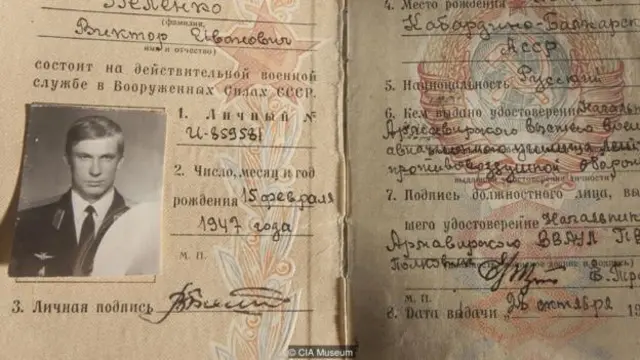 Беленко
(фамилия,
Виктор Иванович
имя и отчество)
состоит на действительной военной
службе в Вооруженных Силах СССР.
1. Личный №
И-859581
2. Число, месяц и год
рождения 15 февраля
1947 года
М. П.
3. Личная подпись
4. Место рождения
Кабардино-Балкарс
АССР
5. Национальность Русский
6. Кем выдано удостоверение
Армавирского высшего вое
авиационного училища
противовоздушной оборон
7. Подпись должностного лица, вы
шего удостоверение Начальник
Армавирского ВВАУЛ П
Полковник
М. П.
8. Дата выдачи „26 октября 19
© CIA Museum